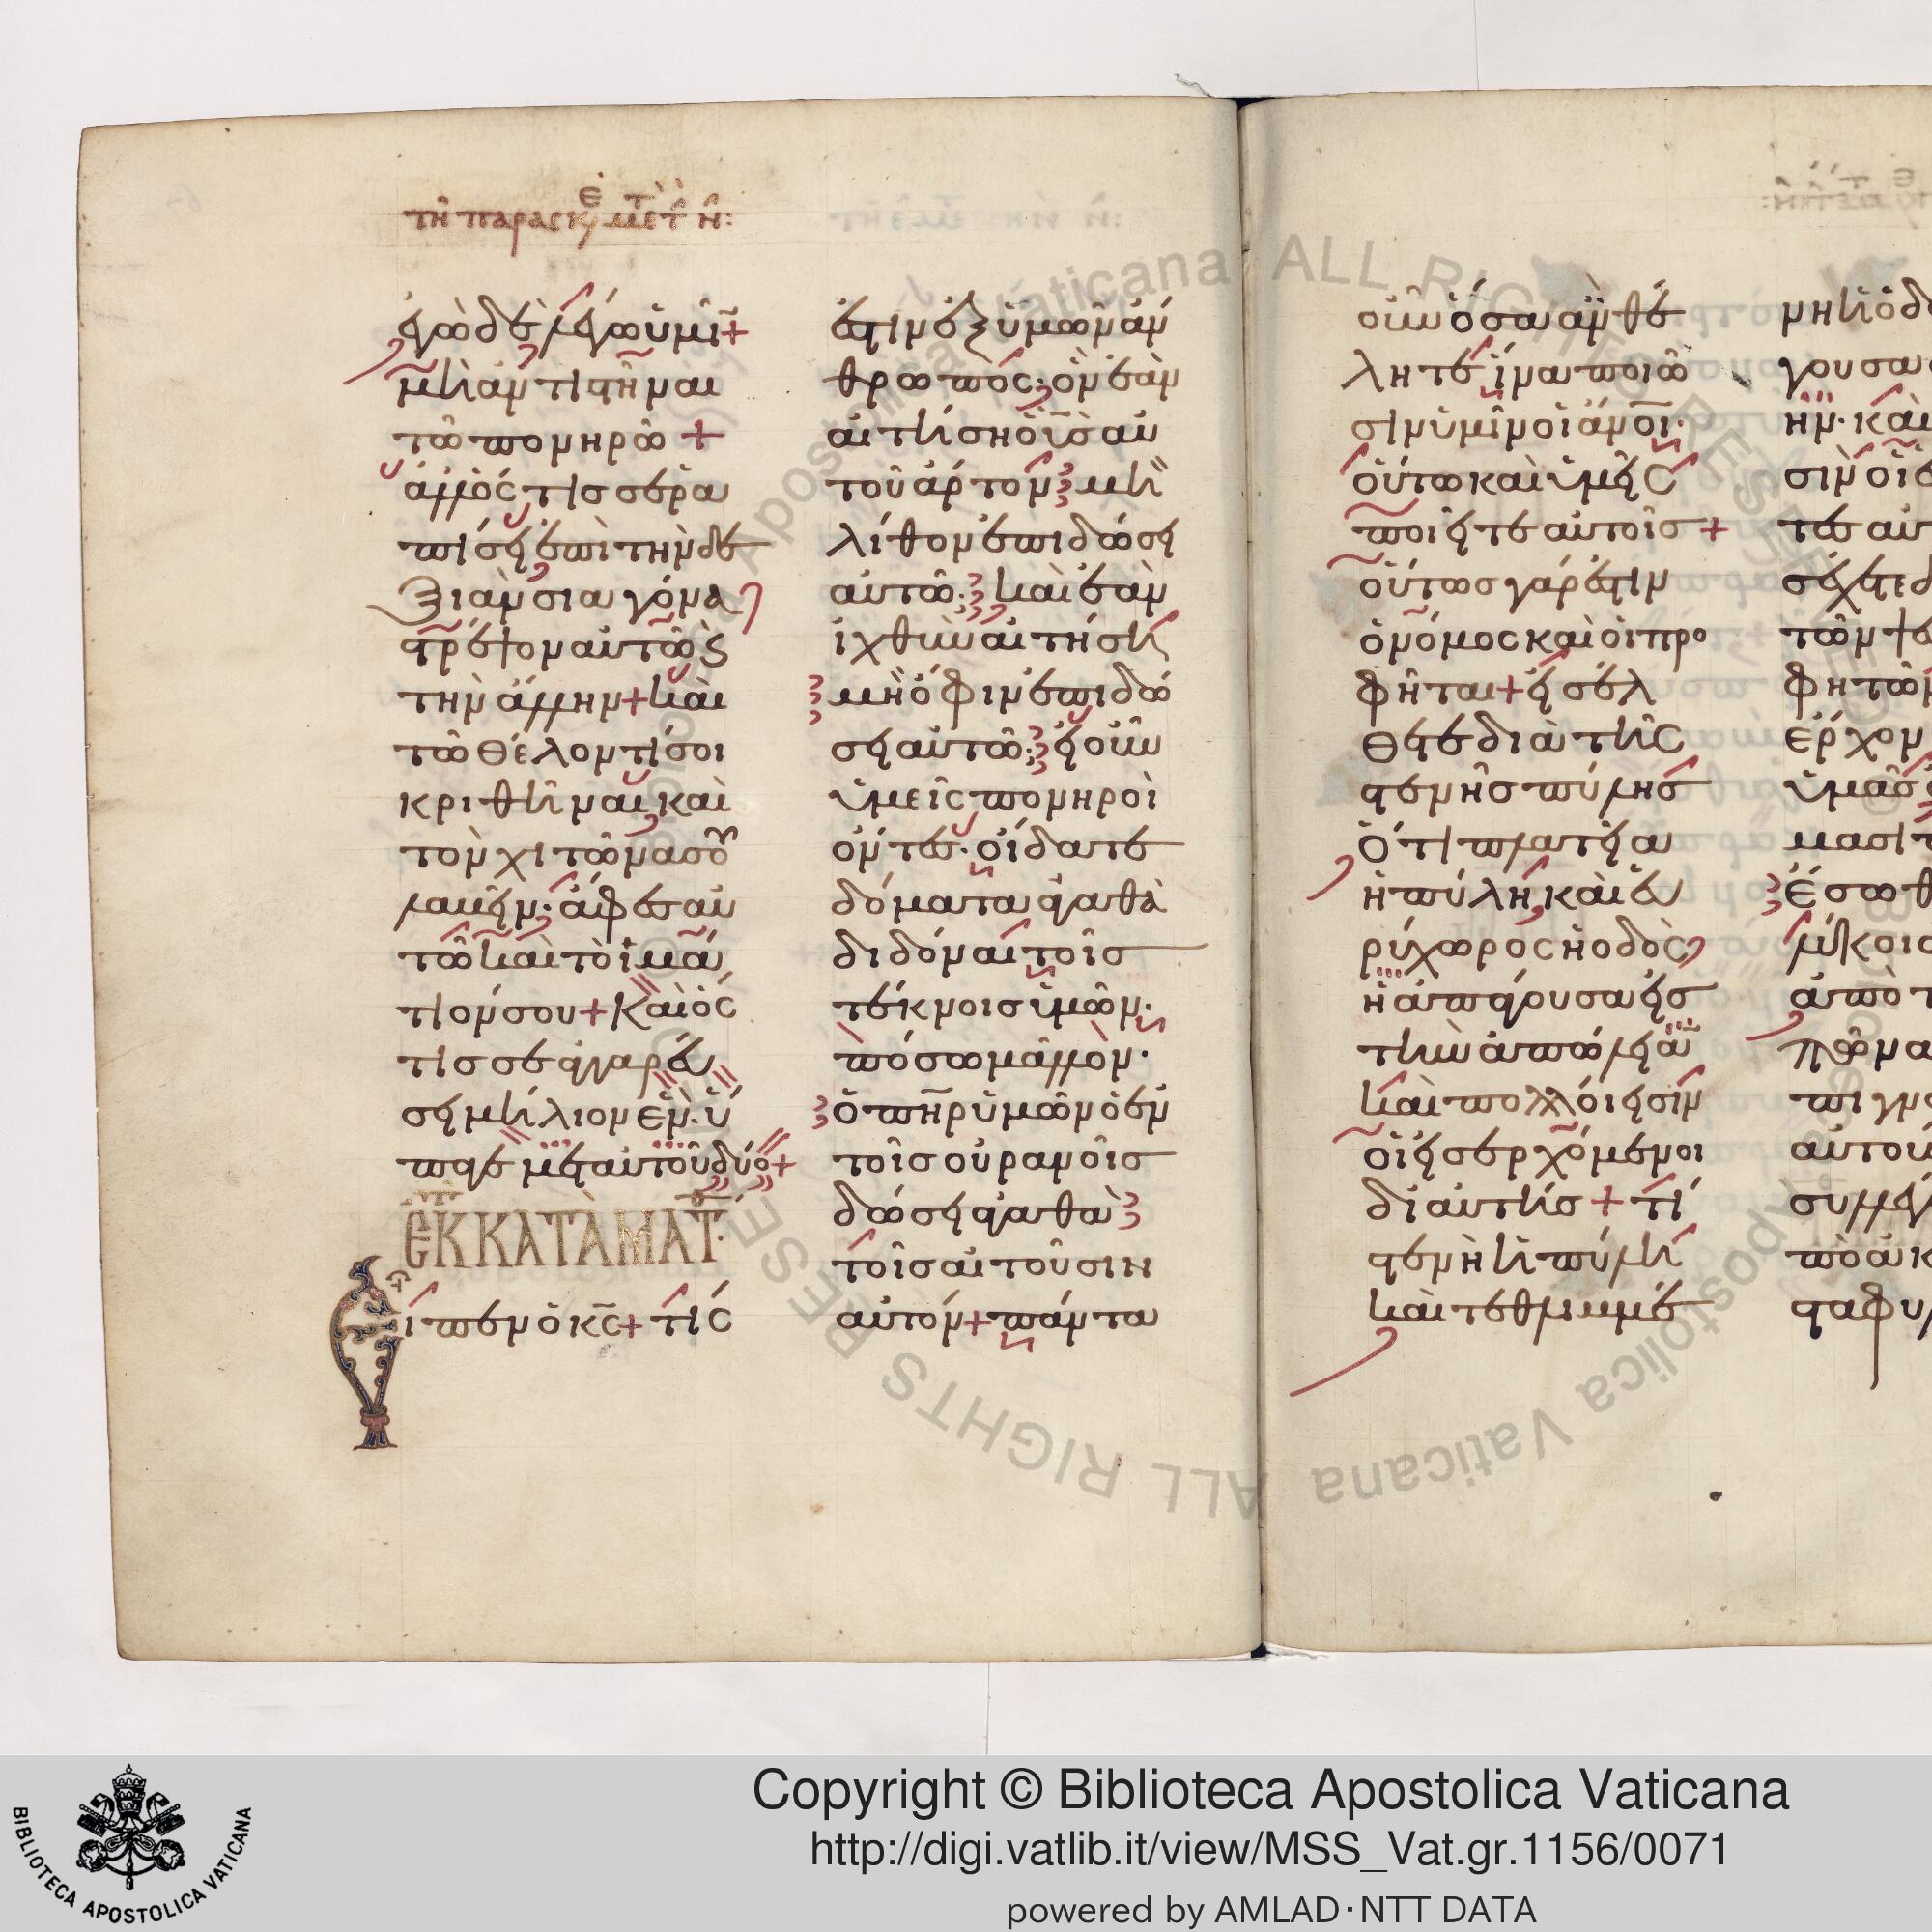 τῇ παρασκε μετ τ ν̂:
ἐγὼ δὲ λέγω ὑμῖν +
μὴ ἀντιστῆναι
τῶ πονηρῶ +
ἀλλ' ὅς τισ σε ρα
πίσει ἐπὶ τὴν δε
ξιὰν σιαγόνα
στρέψον αὐτῶ κ
τὴν ἄλλην + καὶ
τῶ θέλοντί σοι
κριθῆναι, καὶ
τὸν χιτῶνα σου
λαβεῖν· ἄφες αυ
τῶ καὶ τὸ ἱμά
τιόν σου + Καὶ ὅς
τισ σε ἀγγαρεύ
σει μίλιον ἕν· ὕ
παγε μετ αὐτοῦ δύο +
ἘΚ ΚΑΤᾺ ΜΑΤ·
εἶπεν ὁ κς + τίς
ἐστιν ἐξ ὑμῶν ἄν
θρωπός· ὃν ἐὰν
αἰτήση ὁ ϊσ αὐ
τοῦ ἄρτον· μὴ
λίθον ἐπιδώσει
αὐτῶ· καὶ ἐὰν
ἰχθὺν αἰτήση
μὴ ὄφιν ἐπιδώ
σει αὐτῶ· εἰ οὖν
ὑμεῖς πονηροὶ
ὄντες· οἴδατε
δόματα ἀγαθὰ
διδόναι τοῖσ
τέκνοισ ὑμῶν·
πόσω μᾶλλον·
ὁ πηρ ὑμῶν ὁ ἐν
τοῖσ οὐρανοῖσ
δώσει ἀγαθὰ
τοῖσ αἰτοῦσιν
αὐτόν + πάντα
οὖν ὅσα ἂν θέ
λητε ἵνα ποιῶ
σιν ὑμῖν οἱ ἄνοι·
οὕτω καὶ ὑμεῖς
ποιεῖτε αὐτοῖσ +
οὕτωσ γάρ ἐστιν
ὁ νόμος καὶ οἱ προ
φῆται + εἰσέλ
θετε διὰ τῆς
στενῆσ πύλησ
Ὅτι πλατεῖα
ἡ πύλη, καὶ εὐ
ρύχωρος ἡ ὁδὸς
ἡ ἀπάγουσα εἰσ
τὴν ἀπώλειαν
καὶ πολλοί εἰσιν
οἱ εἰσερχόμενοι
δι αὐτῆσ + τί
στενὴ ἡ πύλη
καὶ τεθλιμμέ
νη ἡ ὁδ
γουσα
ἣν· καὶ
σὶν οἱ
τεσ αὐ
σέχετε δ
τῶν ψε
φητῶν
ἔρχον
ὑμᾶσ
μασι
ἔσωθ
λύκοι
ἀπὸ τ
αὐτοι
συλλέ
πὸ ἀκ
σταφυ
Copyright © Biblioteca Apostolica Vaticana
http://digi.vatlib.it/view/MSS_Vat.gr.1156/0071
powered by AMLAD·NTT DATA
BIBLIOTECA APOSTOLICA VATICANA